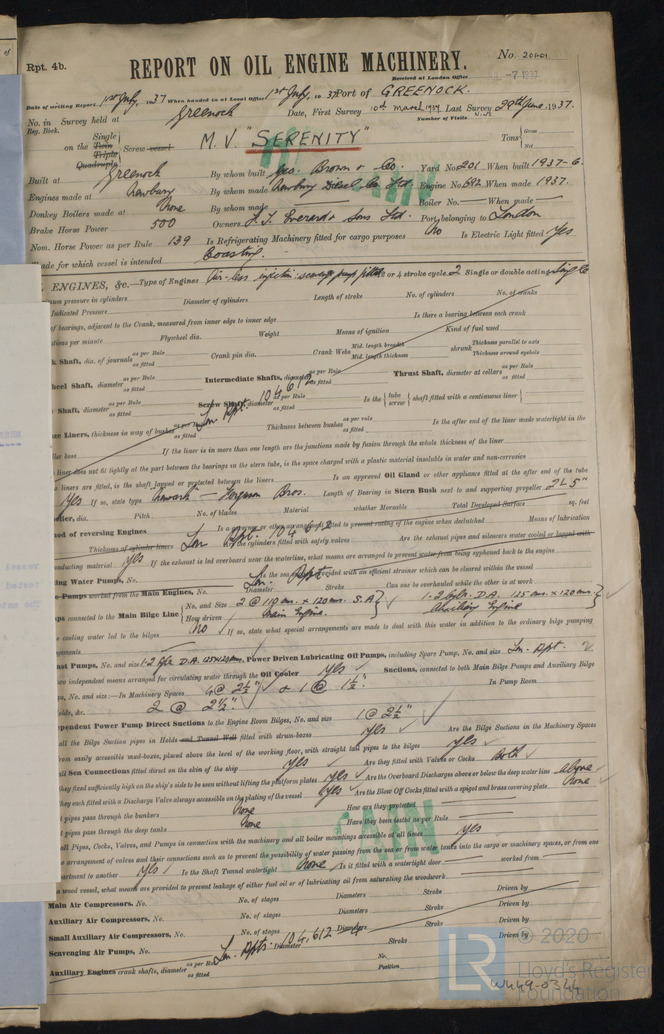 Rpt. 4b.
REPORT ON OIL ENGINE MACHINERY.
No. 20401
Received at London Office
-7 1937
Date of writing Report 1st July, 1937 When handed in at Local Office 1st July, 1937 Port of GREENOCK.
No. in Survey held at Greenock Date, First Survey 10th March 1937 Last Survey 29th June 1937.
Reg. Book.
Number of Visits
Single
on the Twin Screw vessel M.V. "SERENITY" Tons Gross
Triple
Quadruple Net
Built at Greenock By whom built Geo. Brown & Co. Yard No. 201 When built 1937-6
Engines made at Newbury By whom made Newbury Diesel Co. Ltd. Engine No. 692 When made 1937.
Donkey Boilers made at None By whom made Boiler No. When made
Brake Horse Power 500 Owners F. T. Everard & Sons Ltd. Port belonging to London
Nom. Horse Power as per Rule 139 Is Refrigerating Machinery fitted for cargo purposes No Is Electric Light fitted Yes
Trade for which vessel is intended Coasting.
ENGINES, &c.—Type of Engines Air-less injection: scavenge pump fitted 2 or 4 stroke cycle 2 Single or double acting Single
um pressure in cylinders Diameter of cylinders Length of stroke No. of cylinders No. of cranks
Indicated Pressure
f bearings, adjacent to the Crank, measured from inner edge to inner edge Is there a bearing between each crank
tions per minute Flywheel dia. Weight Means of ignition Kind of fuel used
k Shaft, dia. of journals as per Rule as fitted Crank pin dia. Crank Webs Mid. length breadth Mid. length thickness shrunk Thickness parallel to axis Thickness around eyehole
heel Shaft, diameter as per Rule as fitted Intermediate Shafts, diameter as per Rule as fitted Thrust Shaft, diameter at collars as per Rule as fitted
Shaft, diameter as per Rule as fitted Screw Shaft, diameter as per Rule as fitted Is the tube screw shaft fitted with a continuous liner
Lon. Rpt. 104612
ze Liners, thickness in way of bushes as per Rule as fitted Thickness between bushes as per rule as fitted Is the after end of the liner made watertight in the
ller boss If the liner is in more than one length are the junctions made by fusion through the whole thickness of the liner
liner does not fit tightly at the part between the bearings in the stern tube, is the space charged with a plastic material insoluble in water and non-corrosive
liners are fitted, is the shaft lapped or protected between the liners Is an approved Oil Gland or other appliance fitted at the after end of the tube
Yes If so, state type Newark — Ferguson Bros. Length of Bearing in Stern Bush next to and supporting propeller 2'-5"
eller, dia. Pitch No. of blades Material whether Moveable Total Developed Surface sq. feet
od of reversing Engines Is a governor or other arrangement fitted to prevent racing of the engine when declutched Means of lubrication
Lon. Rpt. 104612
Thickness of cylinder liners Are the cylinders fitted with safety valves Are the exhaust pipes and silencers water cooled or lagged with
conducting material Yes If the exhaust is led overboard near the waterline, what means are arranged to prevent water from being syphoned back to the engine
ing Water Pumps, No. Is the sea suction provided with an efficient strainer which can be cleared within the vessel
Lon. Rpt.
Pumps worked from the Main Engines, No. Diameter Stroke Can one be overhauled while the other is at work
ps connected to the Main Bilge Line No. and Size 2 @ 110 ms. × 120 ms. S.A. 1-2 Cylr. D.A. 125 ms. × 120 ms.
How driven Main Engine. Auxiliary Engine
e cooling water led to the bilges No If so, state what special arrangements are made to deal with this water in addition to the ordinary bilge pumping
gements
ast Pumps, No. and size 1-2 Cylr. D.A. 125×120 ms. Power Driven Lubricating Oil Pumps, including Spare Pump, No. and size Lon. Rpt.
wo independent means arranged for circulating water through the Oil Cooler Yes Suctions, connected to both Main Bilge Pumps and Auxiliary Bilge
ps, No. and size:—In Machinery Spaces 4 @ 2½" & 1 @ 1½". In Pump Room
olds, &c. 2 @ 2½"
ependent Power Pump Direct Suctions to the Engine Room Bilges, No. and size 1 @ 2½"
all the Bilge Suction pipes in Holds and Tunnel Well fitted with strum-boxes Yes Are the Bilge Suctions in the Machinery Spaces
rom easily accessible mud-boxes, placed above the level of the working floor, with straight tail pipes to the bilges Yes
all Sea Connections fitted direct on the skin of the ship Yes Are they fitted with Valves or Cocks Both
they fixed sufficiently high on the ship's side to be seen without lifting the platform plates Yes Are the Overboard Discharges above or below the deep water line Above
they each fitted with a Discharge Valve always accessible on the plating of the vessel Yes Are the Blow Off Cocks fitted with a spigot and brass covering plate None
t pipes pass through the bunkers None How are they protected
t pipes pass through the deep tanks None Have they been tested as per Rule
all Pipes, Cocks, Valves, and Pumps in connection with the machinery and all boiler mountings accessible at all times Yes
e arrangement of valves and their connections such as to prevent the possibility of water passing from the sea or from water tanks into the cargo or machinery spaces, or from one
partment to another Yes Is the Shaft Tunnel watertight None Is it fitted with a watertight door worked from
a wood vessel, what means are provided to prevent leakage of either fuel oil or of lubricating oil from saturating the woodwork
Main Air Compressors, No. No. of stages Diameters Stroke Driven by
Auxiliary Air Compressors, No. No. of stages Diameters Stroke Driven by
Small Auxiliary Air Compressors, No. No. of stages Diameters Stroke Driven by
Scavenging Air Pumps, No. Diameter Stroke Driven by
Lon. Rpt. 104612
Auxiliary Engines crank shafts, diameter as per Rule as fitted No. Position
© 2020
LR
Lloyd's Register
Foundation
W449-0344